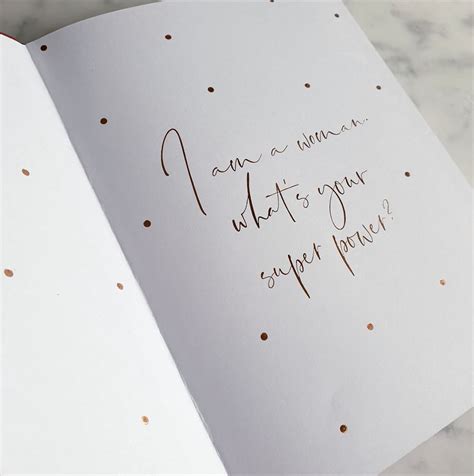 I am a woman.
what's your
super power?